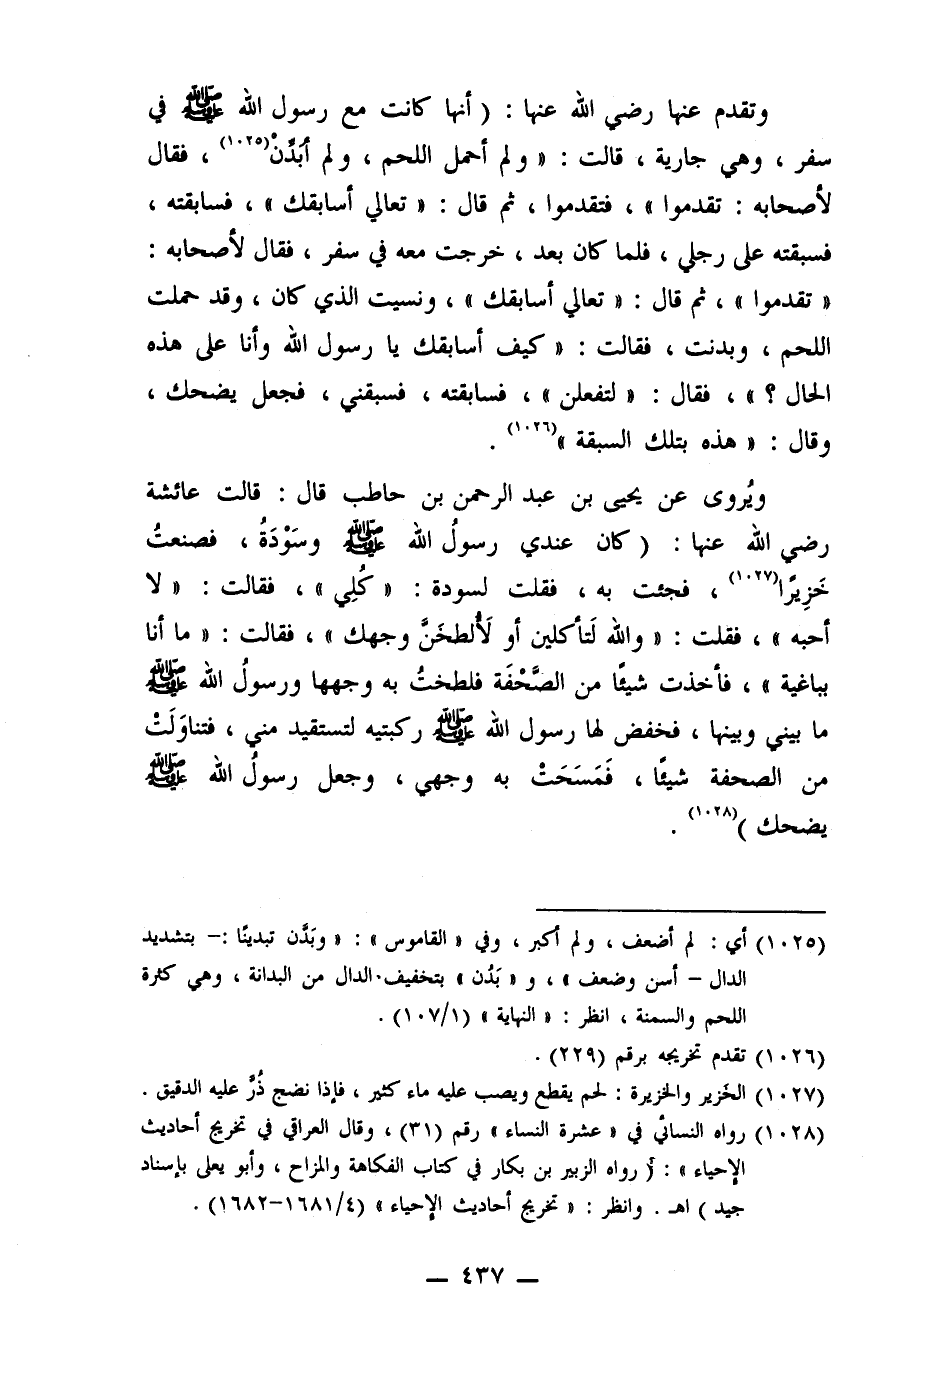 وتقدم عنها رضي الله عنها : ( أنها كانت مع رسول الله ﷺ في
سفر ، وهي جارية ، قالت : « ولم أحمل اللحم ، ولم أُبَدَّنْ(١٠٢٥) ، فقال
لأصحابه : تقدموا » ، فتقدموا ، ثم قال : « تعالي أسابقك » ، فسابقته ،
فسبقته على رجلي ، فلما كان بعد ، خرجت معه في سفر ، فقال لأصحابه :
« تقدموا » ، ثم قال : « تعالي أسابقك » ، ونسيت الذي كان ، وقد حملت
اللحم ، وبدنت ، فقالت : « كيف أسابقك يا رسول الله وأنا على هذه
الحال ؟ » ، فقال : « لتفعلن » ، فسابقته ، فسبقني ، فجعل يضحك ،
وقال : « هذه بتلك السبقة »(١٠٢٦) .
ويُروى عن يحيى بن عبد الرحمن بن حاطب قال : قالت عائشة
رضي الله عنها : ( كان عندي رسولُ الله ﷺ وسَوْدَةُ ، فصنعتُ
خَزِيرًا(١٠٢٧) ، فجئت به ، فقلت لسودة : « كُلِي » ، فقالت : « لا
أحبه » ، فقلت : « والله لَتأكلين أو لَأُلطخَنَّ وجهك » ، فقالت : « ما أنا
بباغية » ، فأخذت شيئًا من الصَّحْفَة فلطختُ به وجهها ورسولُ الله ﷺ
ما بيني وبينها ، فخفض لها رسول الله ﷺ ركبتيه لتستقيد مني ، فتناوَلَتْ
من الصحفة شيئًا ، فَمَسَحَتْ به وجهي ، وجعل رسولُ الله ﷺ
يضحك )(١٠٢٨) .
(١٠٢٥) أي : لم أضعف ، ولم أكبر ، وفي « القاموس » : « وبَدَّن تبدينًا :– بتشديد
الدال – أسن وضعف » ، و « بَدُن » بتخفيف الدال من البدانة ، وهي كثرة
اللحم والسمنة ، انظر : « النهاية » (١٠٧/١) .
(١٠٢٦) تقدم تخريجه برقم (٢٢٩) .
(١٠٢٧) الخَزير والخزيرة : لحم يقطع ويصب عليه ماء كثير ، فإذا نضج ذُرَّ عليه الدقيق .
(١٠٢٨) رواه النسائي في « عشرة النساء » رقم (٣١) ، وقال العراقي في تخريج أحاديث
الإحياء » : ( رواه الزبير بن بكار في كتاب الفكاهة والمزاح ، وأبو يعلى بإسناد
جيد ) اهـ . وانظر : « تخريج أحاديث الإحياء » (١٦٨١/٤–١٦٨٢) .
— ٤٣٧ —